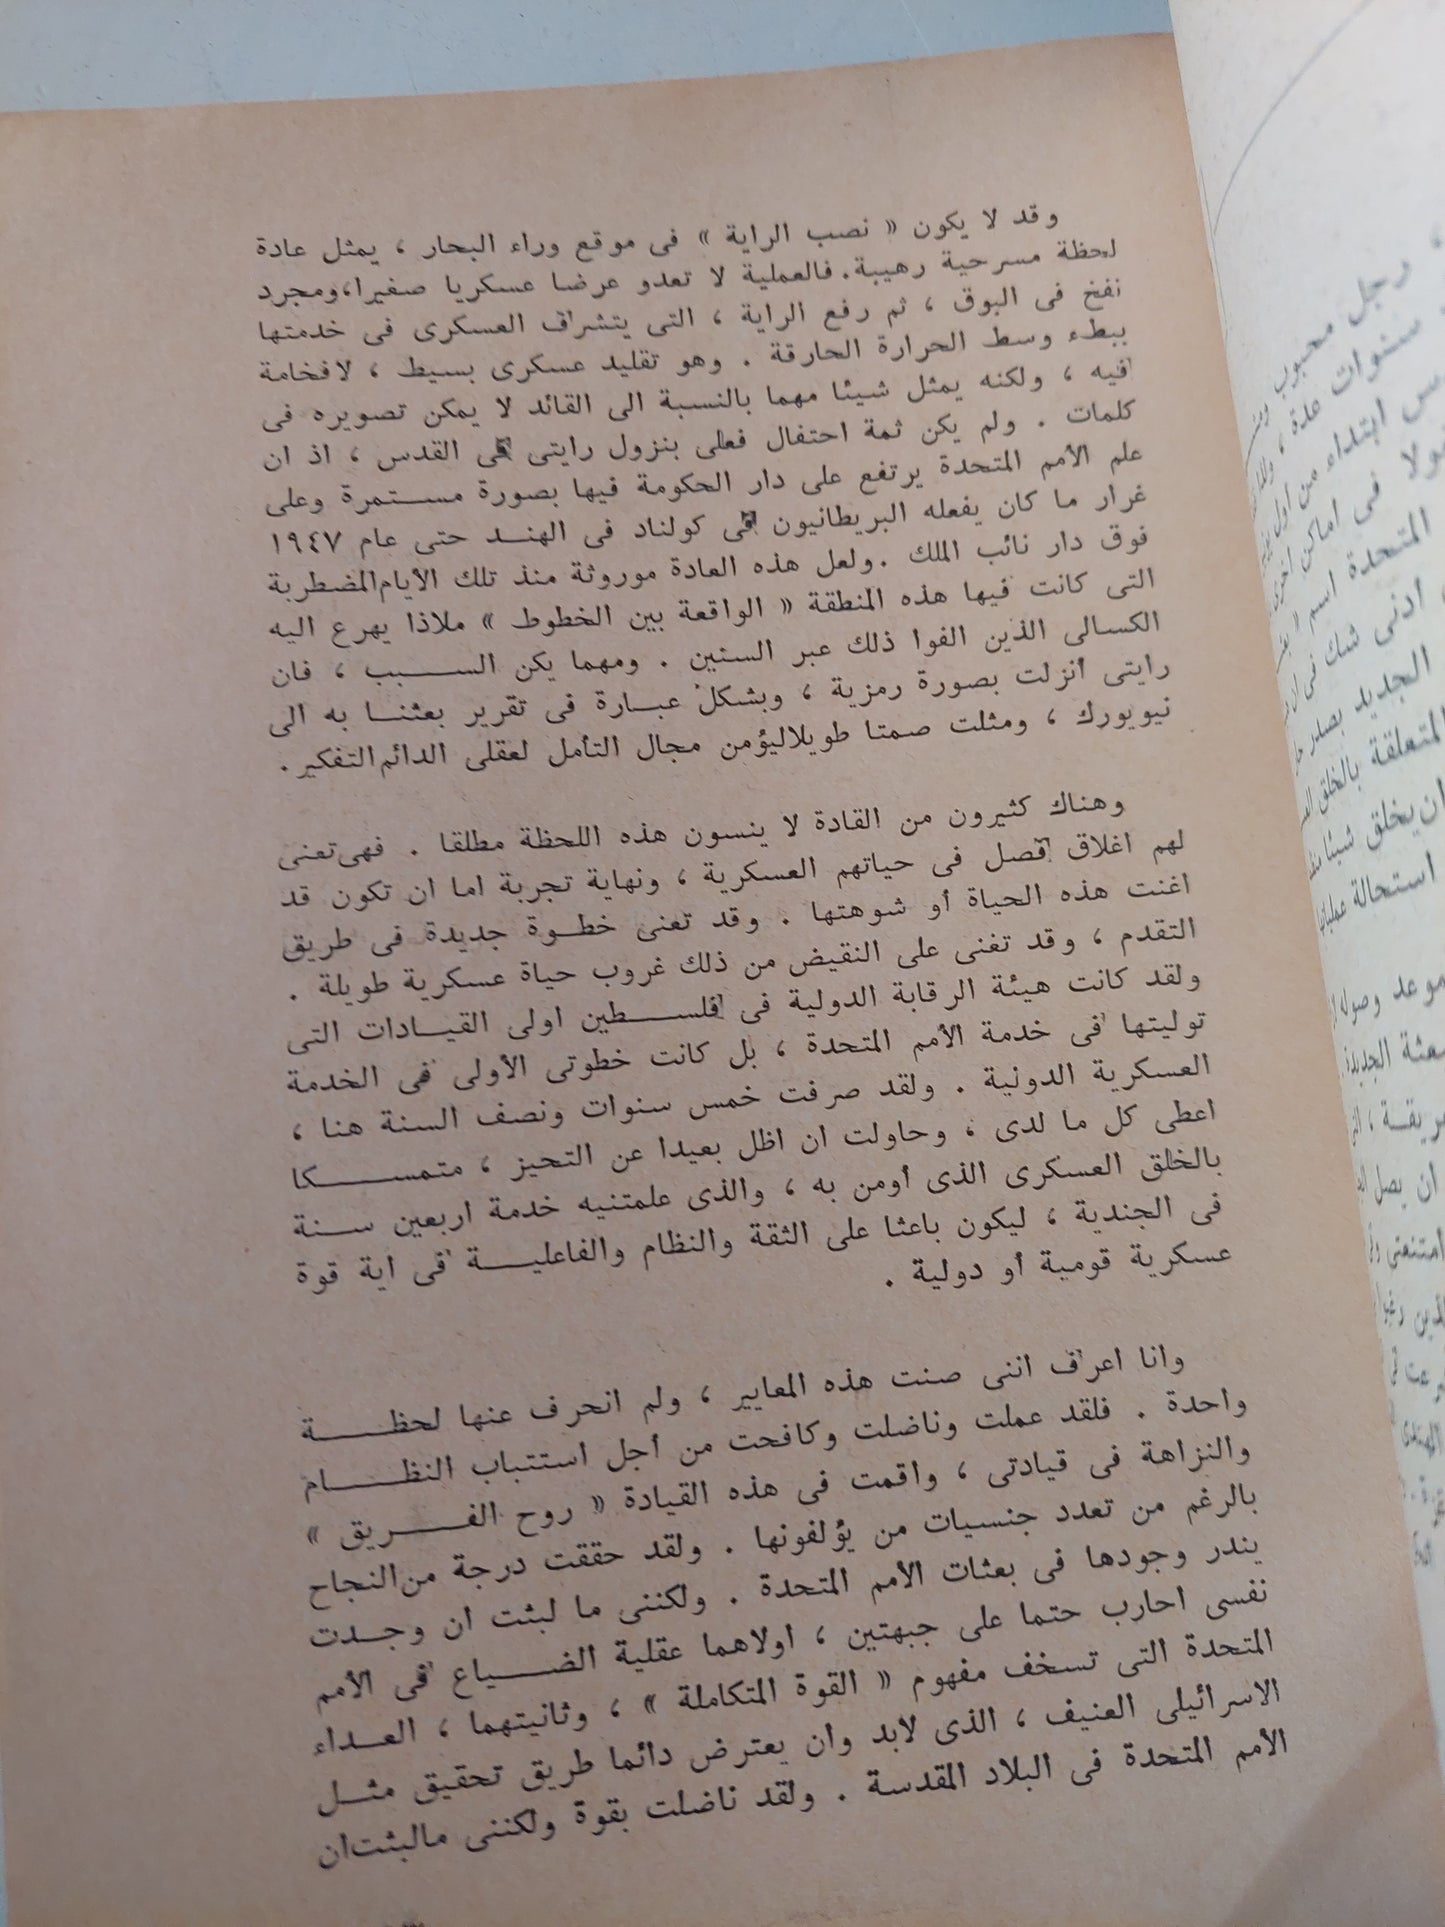 وقد لا يكون « نصب الراية » فى موقع وراء البحار ، يمثل عادة
لحظة مسرحية رهيبة. فالعملية لا تعدو عرضا عسكريا صغيرا،ومجرد
نفخ فى البوق ، ثم رفع الراية ، التى يتشراف العسكرى فى خدمتها
ببطء وسط الحرارة الحارقة . وهو تقليد عسكرى بسيط ، لافخامة
فيه ، ولكنه يمثل شيئا مهما بالنسبة الى القائد لا يمكن تصويره فى
كلمات . ولم يكن ثمة احتفال فعلى بنزول رايتى فى القدس ، اذ ان
علم الأمم المتحدة يرتفع على دار الحكومة فيها بصورة مستمرة وعلى
غرار ما كان يفعله البريطانيون فى كولناد فى الهند حتى عام ١٩٤٧
فوق دار نائب الملك .ولعل هذه العادة موروثة منذ تلك الأيام المضطربة
التى كانت فيها هذه المنطقة « الواقعة بين الخطوط » ملاذا يهرع اليه
الكسالى الذين الفوا ذلك عبر السنين . ومهما يكن السبب ، فان
رايتى أنزلت بصورة رمزية ، وبشكل عبارة فى تقرير بعثنا به الى
نيويورك ، ومثلت صمتا طويلاليؤمن مجال التأمل لعقلى الدائم التفكير.
وهناك كثيرون من القادة لا ينسون هذه اللحظة مطلقا . فهى تعنى
لهم اغلاق فصل فى حياتهم العسكرية ، ونهاية تجربة اما ان تكون قد
اغنت هذه الحياة أو شوهتها . وقد تعنى خطوة جديدة فى طريق
التقدم ، وقد تغنى على النقيض من ذلك غروب حياة عسكرية طويلة .
ولقد كانت هيئة الرقابة الدولية فى فلسطين اولى القيادات التى
توليتها فى خدمة الأمم المتحدة ، بل كانت خطوتى الأولى فى الخدمة
العسكرية الدولية . ولقد صرفت خمس سنوات ونصف السنة هنا ،
اعطى كل ما لدى ، وحاولت ان اظل بعيدا عن التحيز ، متمسكا
بالخلق العسكرى الذى أومن به ، والذى علمتنيه خدمة اربعين سنة
فى الجندية ، ليكون باعثا على الثقة والنظام والفاعلية فى اية قوة
عسكرية قومية أو دولية .
وانا اعرف اننى صنت هذه المعايير ، ولم انحرف عنها لحظة
واحدة . فلقد عملت وناضلت وكافحت من أجل استتباب النظام
والنزاهة فى قيادتى ، واقمت فى هذه القيادة « روح الفريق »
بالرغم من تعدد جنسيات من يؤلفونها . ولقد حققت درجة من النجاح
يندر وجودها فى بعثات الأمم المتحدة . ولكننى ما لبثت ان وجدت
نفسى احارب حتما على جبهتين ، اولاهما عقلية الضياع فى الأمم
المتحدة التى تسخف مفهوم « القوة المتكاملة » ، وثانيتهما ، العداء
الاسرائيلى العنيف ، الذى لابد وان يعترض دائما طريق تحقيق مثل
الأمم المتحدة فى البلاد المقدسة . ولقد ناضلت بقوة ولكننى مالبثت ان